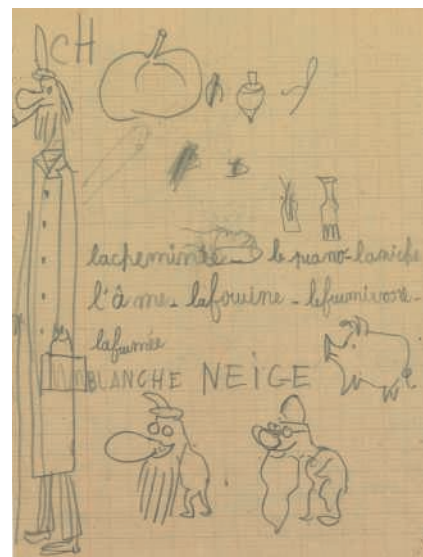 CH
lacheminée le piano-laniche
l'âme-lafouine-lefumivore-
lafumée
BLANCHE NEIGE